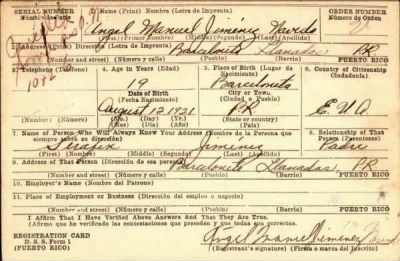 SERIAL NUMBER 1. NAME (Print) NOMBRE (Letra de Imprenta) ORDER NUMBER
Número de Orden
Angel Manuel Jiménez
(First) (Nombre) (Middle) (Segundo) (Last) (Apellido)
2. Address (Print) Dirección (Letra de Imprenta)
Barceloneta Llanadas P.R.
(Town) Pueblo (Barrio) PUERTO RICO
3. Telephone (Teléfono) 4. Age in Years (Edad) 5. Place of Birth (Lugar de Nacimiento) 6. Country of Citizenship (Ciudadanía)
19 Barceloneta
Date of Birth City or Town
(Fecha de Nacimiento) (Ciudad o Pueblo)
August 12 1921 P.R. E.U.A.
(Mo.) (Day) (Yr.) State or country
(Mes) (Día) (Año) (Estado o país)
7. Name of Person Who Will Always Know Your Address (Nombre de la Persona que siempre sabrá su dirección) 8. Relationship of That Person (Parentesco)
Serafín Jiménez Padre
(First) (Nombre) (Middle) (Segundo) (Last) (Apellido)
9. Address of That Person (Dirección de esa persona)
Barceloneta Llanadas, P.R.
(Town) Pueblo (Barrio) PUERTO RICO
10. Employer's Name (Nombre del Patrono)
11. Place of Employment or Business (Dirección del empleo o negocio)
(Town) Pueblo (Barrio) PUERTO RICO
I Affirm That I Have Verified Above Answers And That They Are True.
(Afirmo que he verificado las contestaciones que preceden y que todas son correctas.)
REGISTRATION CARD
D. S. S. Form 1
(Registrant's signature) (Firma o marca del Inscrito)
Angel Manuel Jiménez